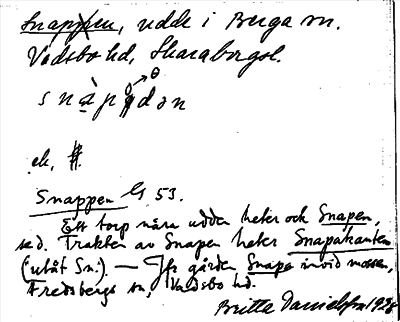 Snappen, udde i Berga sn.
Vadsbo hd, Skarabergsl.
snàpədən
ek,
Snappen G 53.
Ett torp nära udden heter ock Snapen,
se d. Trakten av Snapen heter Snapakanten
(utåt Sn.). — Jfr gården Snape invid mossen,
Fredsbergs sn, Vadsbo hd.
Britta 1928